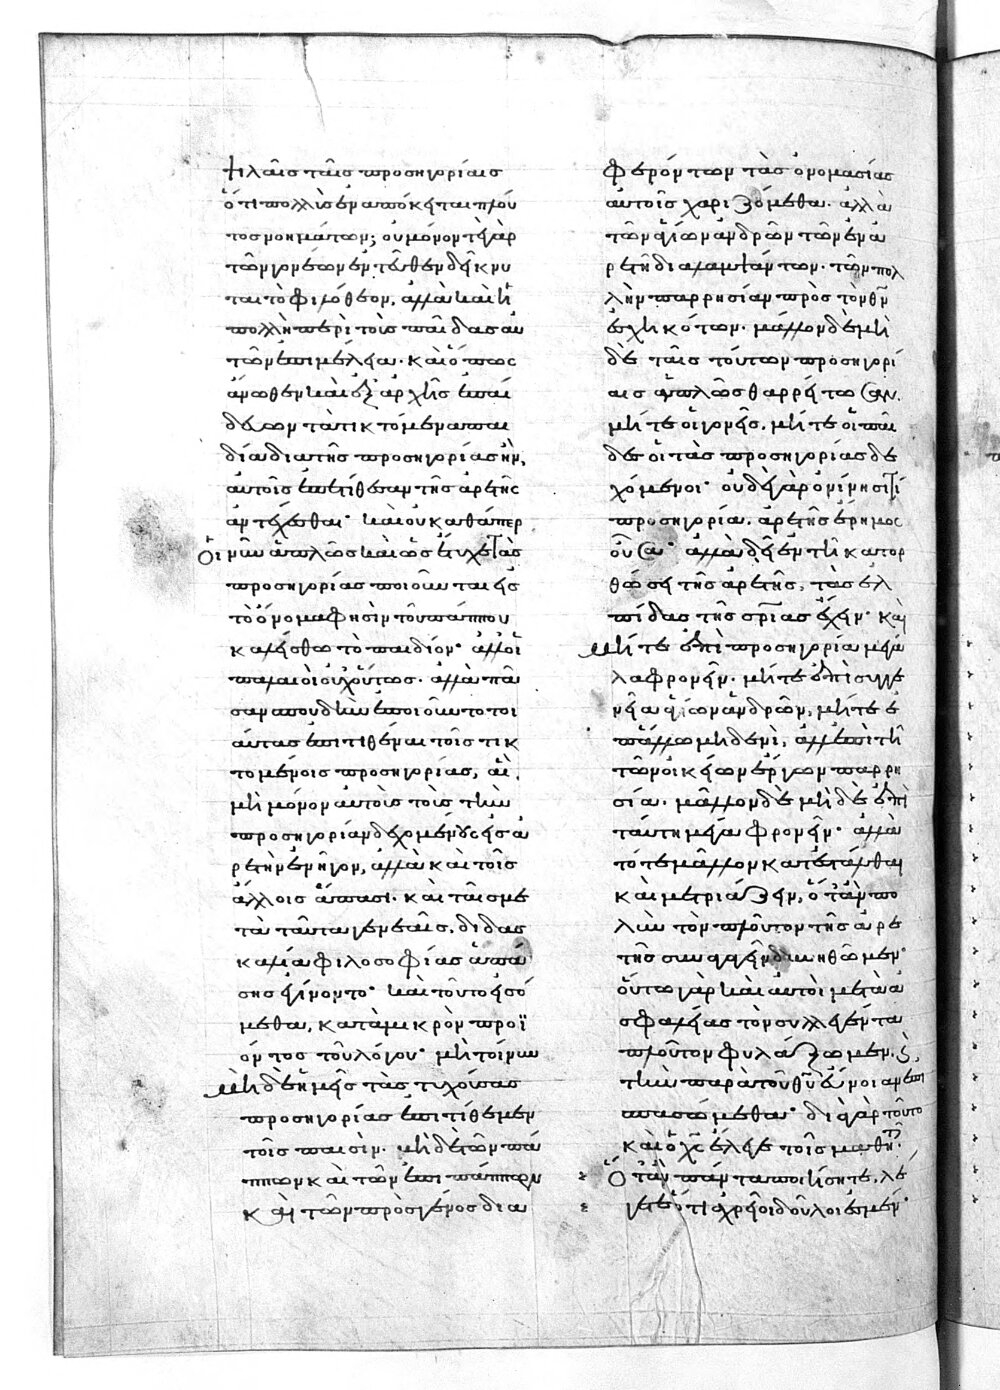 ψιλαῖς ταῖς προσηγορίαις
ὅτι πολλὶς ἐναπόκειται πλοῦ
τος νοημάτων; οὐ μόνον τὲ γὰρ
τῶν γονέων ἐντεῦθεν δείκνυ
ται τὸ φιλόθεον, ἀλλὰ καὶ ἡ
πολλὴ περὶ τοὺς παῖδας αὐ
τῶν ἐπιμέλεια. καὶ ὅπως
ἄνωθεν καὶ ἐξ ἀρχῆς ἐπαί
δευον τὰ τικτόμενα παι
δία διὰ τῆς προσηγορίας ἣν,
αὐτοῖς ἐπετίθεσαν τῆς ἀρετῆς
ἀντέχεσθαι. καὶ οὐ καθάπερ
οἱ νῦν ἁπλῶς καὶ ὡς ἔτυχε τὰς
προσηγορίας ποιοῦνται εἰς
τὸ ὄνομα φησὶν τοῦ πάππου
καλείσθω τὸ παιδίον. ἀλλ' οἱ
παλαιοὶ οὐχ οὕτως. ἀλλὰ πᾶ
σαν σπουδὴν ἐποιοῦντο τοι
αύτας ἐπιτιθέναι τοῖς τικ
τομένοις προσηγορίας, αἳ,
μὴ μόνον αὐτοὺς τοὺς τὴν
προσηγορίαν δεχομένους εἰς ἀ
ρετὴν ἐνῆγον, ἀλλὰ καὶ τοῖς
ἄλλοις ἅπασι. καὶ ταῖς με
τὰ ταῦτα γενεαῖς, διδασ
καλία φιλοσοφίας ἁπά
σης ἐγίνοντο. καὶ τοῦτο εἰσό
μεθα, κατὰ μικρὸν προϊ
όντος τοῦ λόγου. μὴ τοίνυν
μηδὲ ἡμεῖς τὰς τυχούσας
προσηγορίας ἐπιτίθεμεν
τοῖς παισίν. μηδὲ τῶν πά
ππων καὶ τῶν ἐπιπάππων
καὶ τῶν πρὸς γένος δια
φερόντων τὰς ὀνομασίας
αὐτοῖς χαριζόμεθα. ἀλλὰ
τῶν ἁγίων ἀνδρῶν τῶν ἐν ἀ
ρετῇ διαλαμψάντων. τῶν πολ
λὴν παρρησίαν πρὸς τὸν θν
ἐσχηκότων. μᾶλλον δὲ μη
δὲ ταῖς τούτων προσηγορί
αις ἁπλῶς θαρρείτωσαν.
μήτε οἱ γονεῖς, μήτε οἱ παῖ
δες οἱ τὰς προσηγορίας δε
χόμενοι. οὐδὲ γὰρ ὀνίνησί τι
προσηγορία, ἀρετῆς ἔρημος
οὖσα. ἀλλὰ δεῖ ἐν τῇ κατορ
θώσει τῆς ἀρετῆς, τὰς ἐλ
πίδας τῆς σρίας ἔχειν. καὶ
μήτε ἐπὶ προσηγορία μεγά
λα φρονεῖν. μήτε ἐπὶ συγγε
νεία ἁγίων ἀνδρῶν, μήτε ἐ
π' ἄλλω μηδενὶ, ἀλλ' ἐπὶ τῇ
τῶν οἰκείων ἔργων παρρη
σία. μᾶλλον δὲ μηδὲ ἐπὶ
ταύτη μεγάλα φρονεῖν. ἀλλὰ
τότε μᾶλλον κατεστάλθαι
καὶ μετριάζειν, ὅταν πο
λὺν τὸν πλοῦτον τῆς ἀρε
τῆς συναγαγεῖν δυνηθῶμεν.
οὕτω γὰρ καὶ αὐτοὶ μετὰ ἀ
σφαλείας τὸν συλλεγέντα
πλοῦτον φυλάξωμεν. καὶ
τὴν παρὰ τοῦ θυ εὔνοιαν ἐπι
σπασώμεθα. διὰ γὰρ τοῦτο
καὶ ὁ χς ἔλεγε τοῖς μαθη
ὅταν πάντα ποιήσητε, λέ
γετε ὅτι ἀχρεῖοι δοῦλοι ἐσμέν.